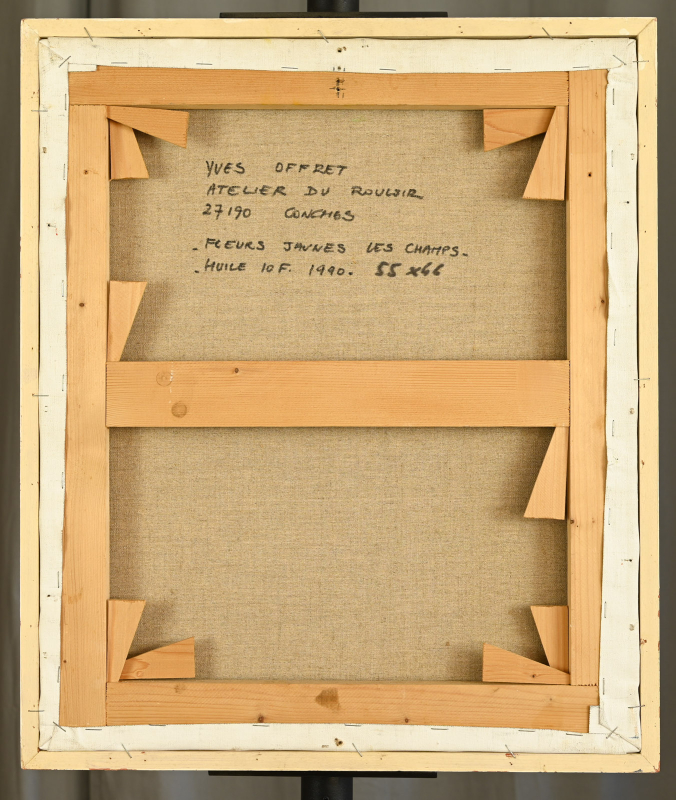 YVES OFFRET
ATELIER DU ROULOIR
27190 CONCHES
- FLEURS JAUNES LES CHAMPS -
- HUILE 10 F. 1990. 55 x 46